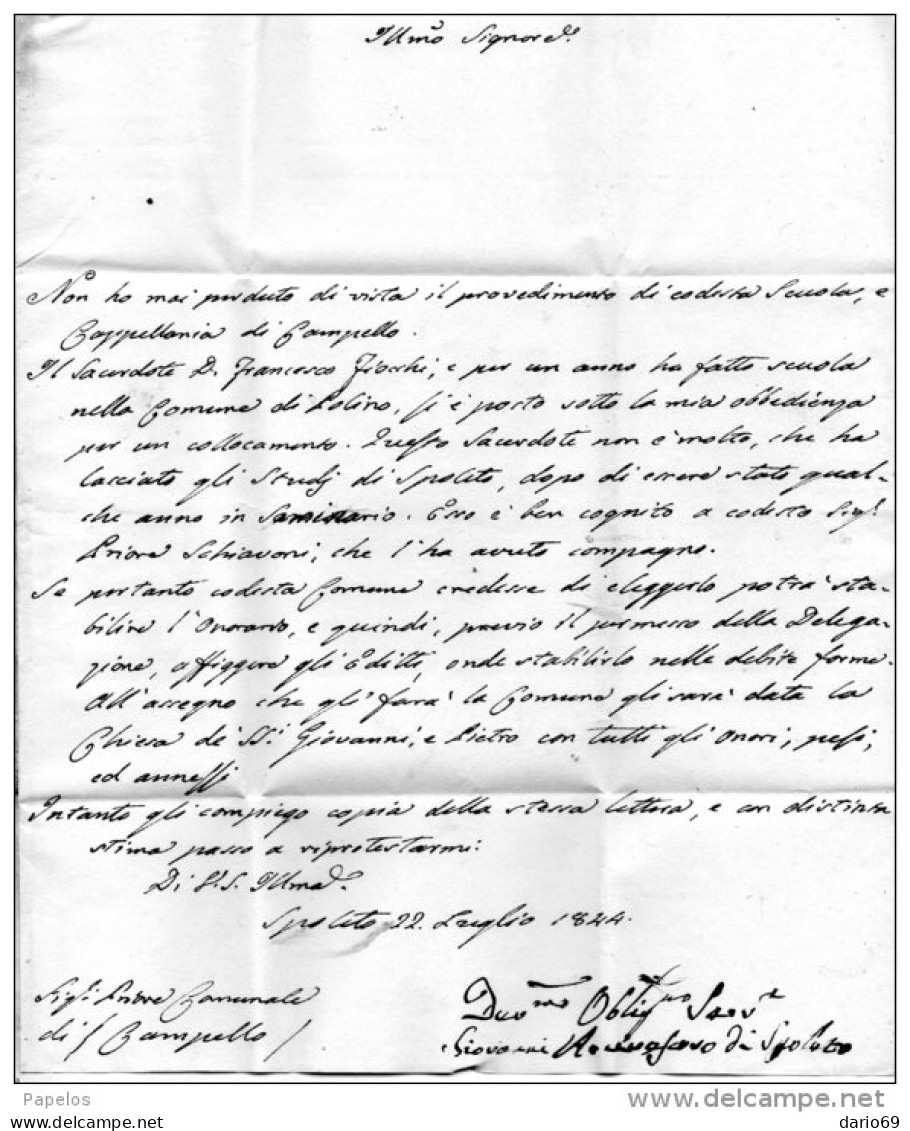 Illmo Signore
Non ho mai perduto di vista il provedimento di codesta Scuola, e
Cappellania di Campello.
Il Sacerdote D. Francesco Fiocchi, e per un anno ha fatto scuola
nella Comune di Polino, si è posto sotto la mia obbedienza
per un collocamento. Questo Sacerdote non è molto, che ha
lasciato gli Studj di Spoleto, dopo di essere stato qual-
che anno in Seminario. Esso è ben cognito a codesto Sigr.
Priore Schiavoni, che l'ha avuto compagno.
Se pertanto codesta Comune credesse di eleggerlo potrà sta-
bilire l'Onorario, e quindi, previo il permesso della Delega-
zione, affiggere gli Editti, onde stabilirlo nelle debite forme.
All'assegno che gli farà la Comune gli sarà data la
Chiesa de' SS. Giovanni, e Pietro con tutti gli onori, pesi,
ed annessi
Intanto gli compiego copia della stessa lettera, e con distinta
stima passo a riprotestarmi.
Di V. S. Illma
Spoleto 22. Luglio 1844.
Sigr. Priore Comunale
di / Campello /
Devmo Obligmo Servr
Giovanni di Spoleto
Papelos
www.delcampe.net
dario69